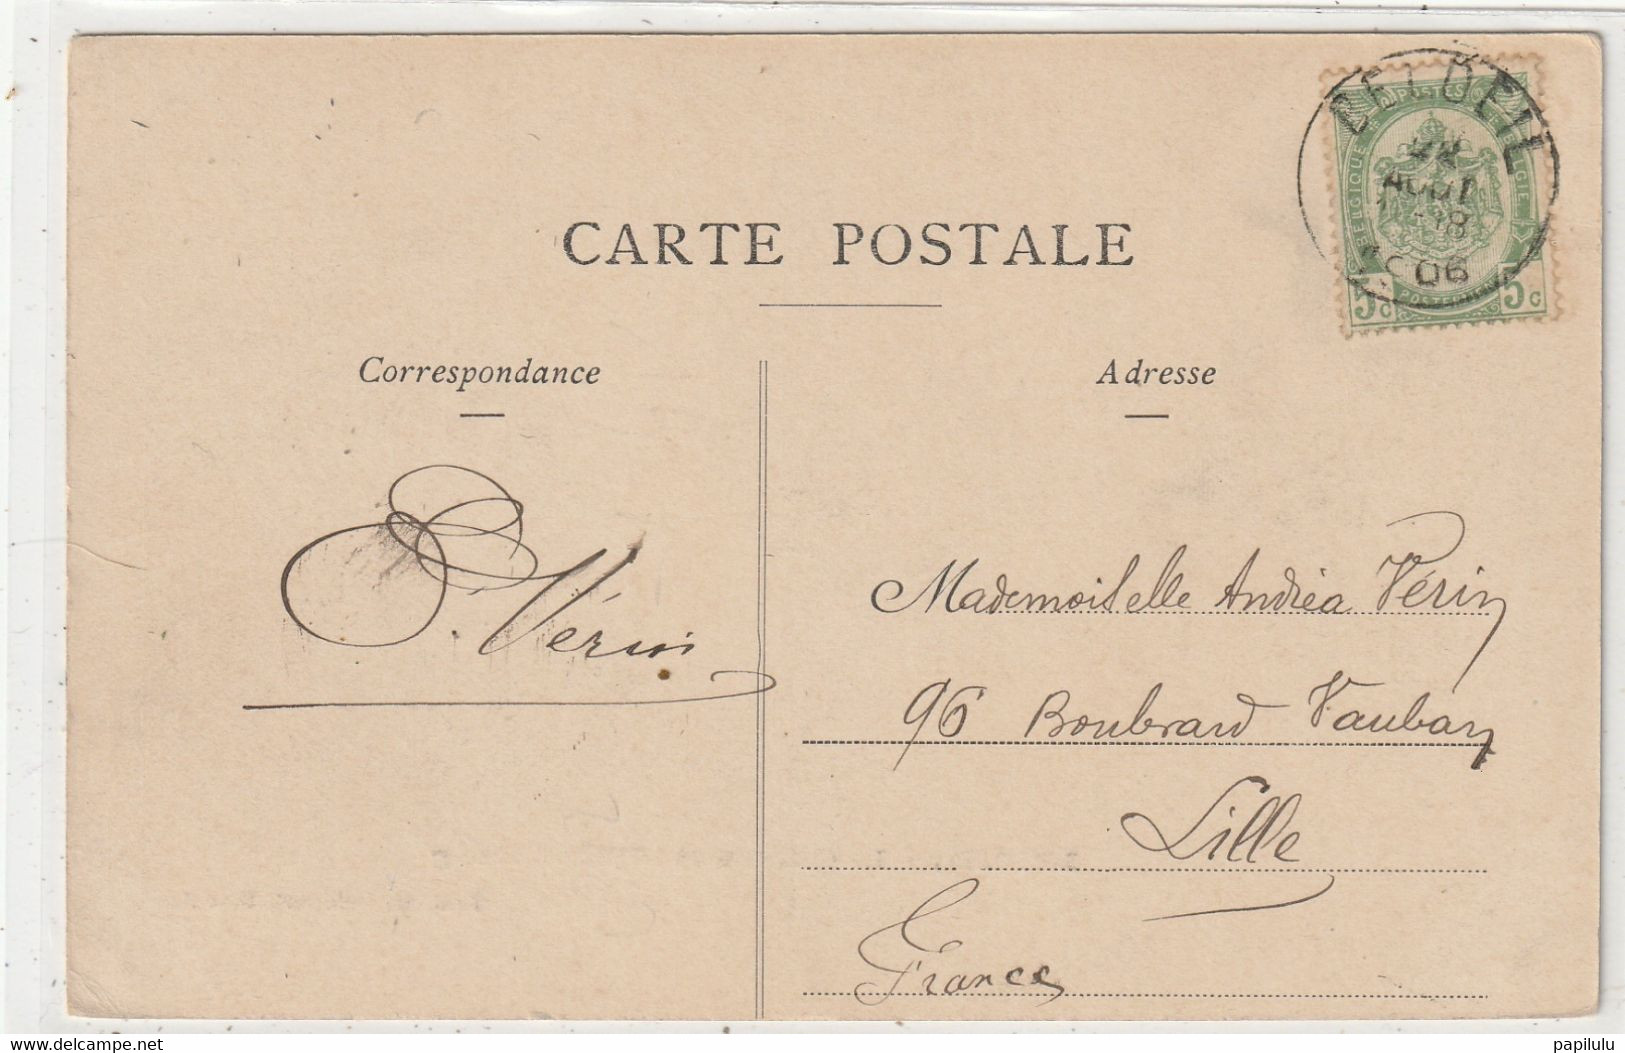 BELOEIL
22
AOUT
18
06
POSTES
BELGIQUE
BELGIE
5c
5c
CARTE POSTALE
Correspondance
Adresse
Vérin
Mademoiselle Andréa Vérin
96 Boulevard Vauban
Lille
France
delcampe.net
papilulu